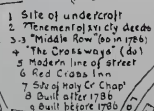 1 Site of undercroft
2 Tenement of XVIc.ly deeds
3-3 "Middle Row" (so in 1786)
4 "The Crossways" (do)
5 Modern line of street
6 Red Cross Inn
7 Site of Holy Cr Chapl
8 Built after 1786
9 Built before 1786